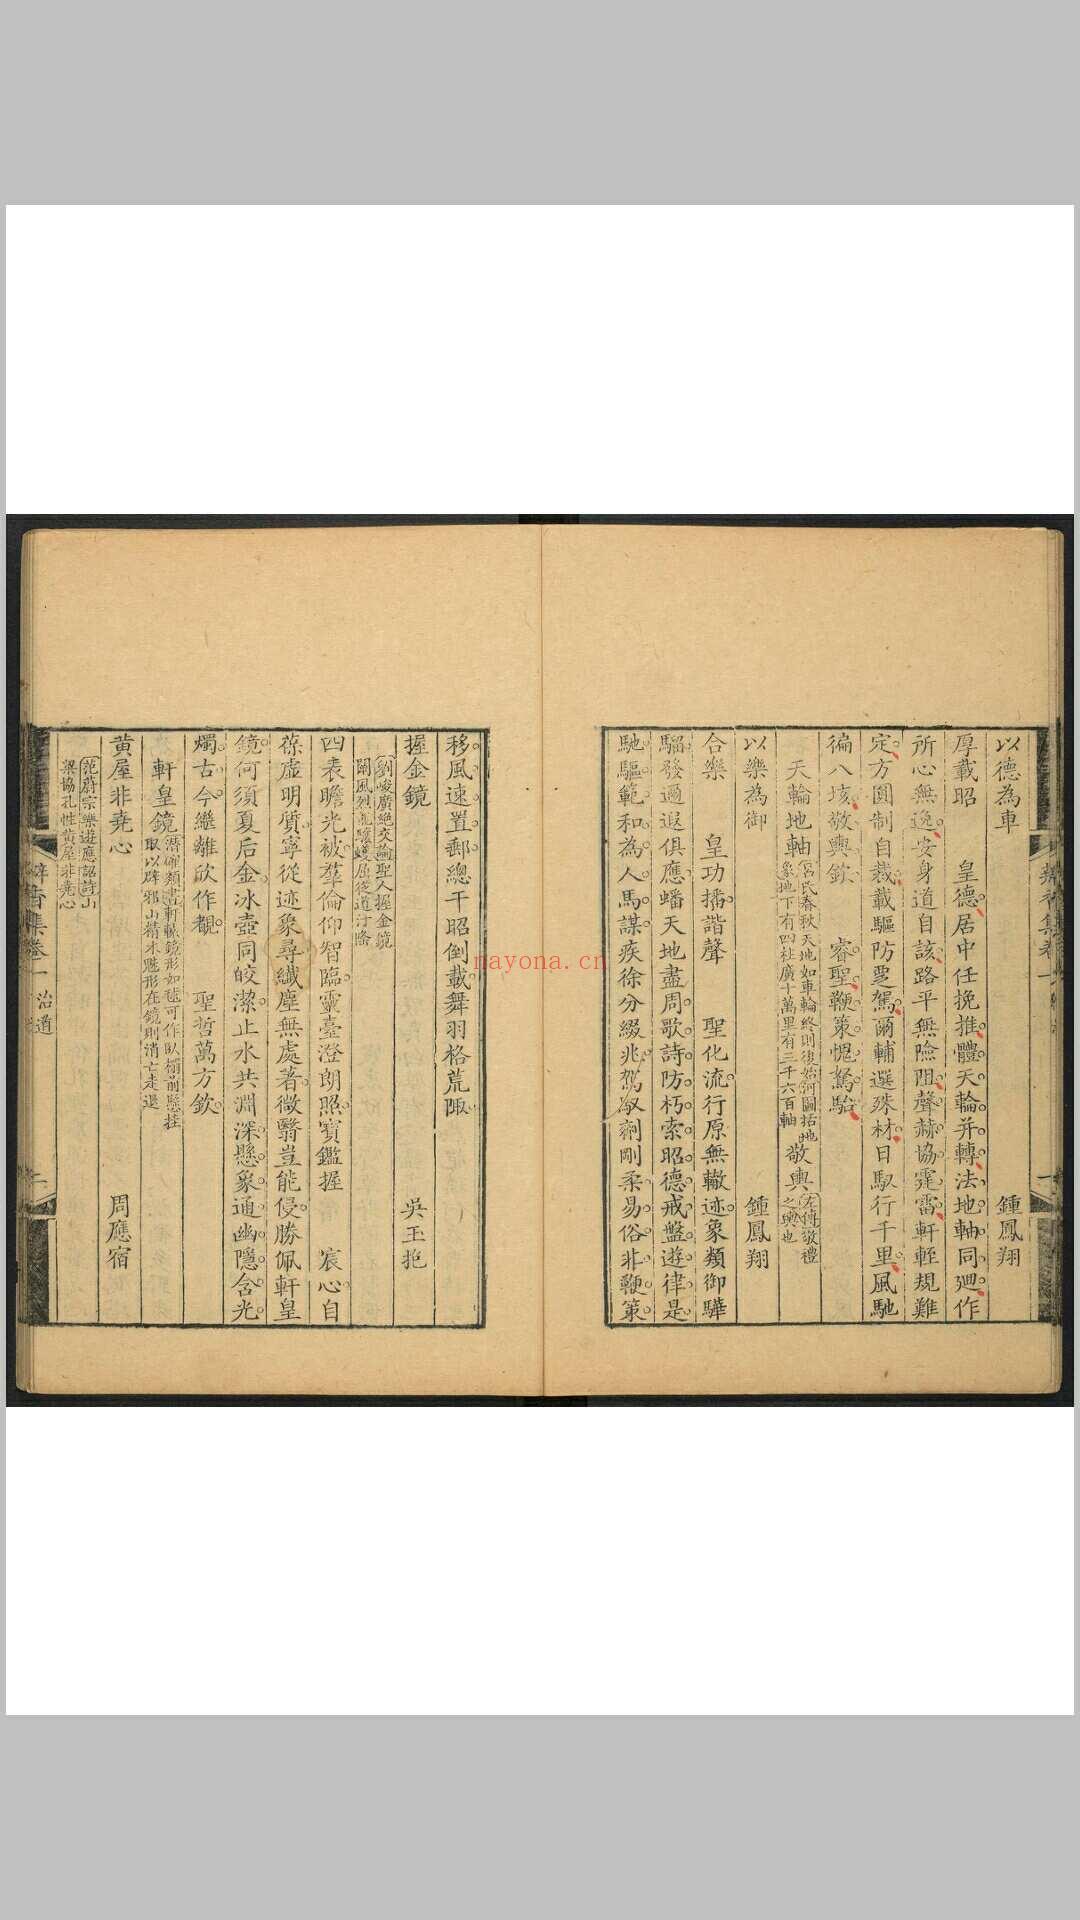 以德為車　鍾鳳翔
厚載昭　皇德居中任挽推體天輪並轉法地軸同廻作
所心無逸安身道自該路平無險阻聲赫協霆雷軒輊規難
定方圓制自裁載驅防覂駕爾輔選殊材日馭行千里風馳
徧八垓敬輿欽　睿聖鞭策愧駑駘
天輪地軸呂氏春秋天地如車輪終則復始河圖括地
象地下有四柱廣十萬里有三千六百軸敬輿左傳敬禮
之輿也
以樂為御　鍾鳳翔
合樂　皇功播諧聲　聖化流行原無轍迹象類御驊
騮發邇遐俱應蟠天地盡周歌詩防朽索昭德戒盤遊律是
馳驅範和為人馬謀疾徐分綴兆駕馭劑剛柔易俗非鞭策
移風速置郵總干昭倒載舞羽格荒陬
握金鏡　吳玉
劉峻廣絕交論聖人握金鏡
闡風烈龍驤蠖屈從道汙隆
四表瞻光被羣倫仰智臨靈臺澄朗照寶鑑握　宸心自
葆虛明質寧從迹象尋纖塵無處著微翳豈能侵勝佩軒皇
鏡何須夏后金冰壺同皎潔止水共淵深懸象通幽隱含光
燭古今繼離欣作覩　聖哲萬方欽
軒皇鏡潛確類書軒轅鏡形如毬可作臥榻前懸挂
取以辟邪山精水魅形在鏡則消亡走退
黃屋非堯心　周應宿
范蔚宗樂遊應詔詩山
梁協孔性黃屋非堯心
辦香集卷一　治道
nayona.cn